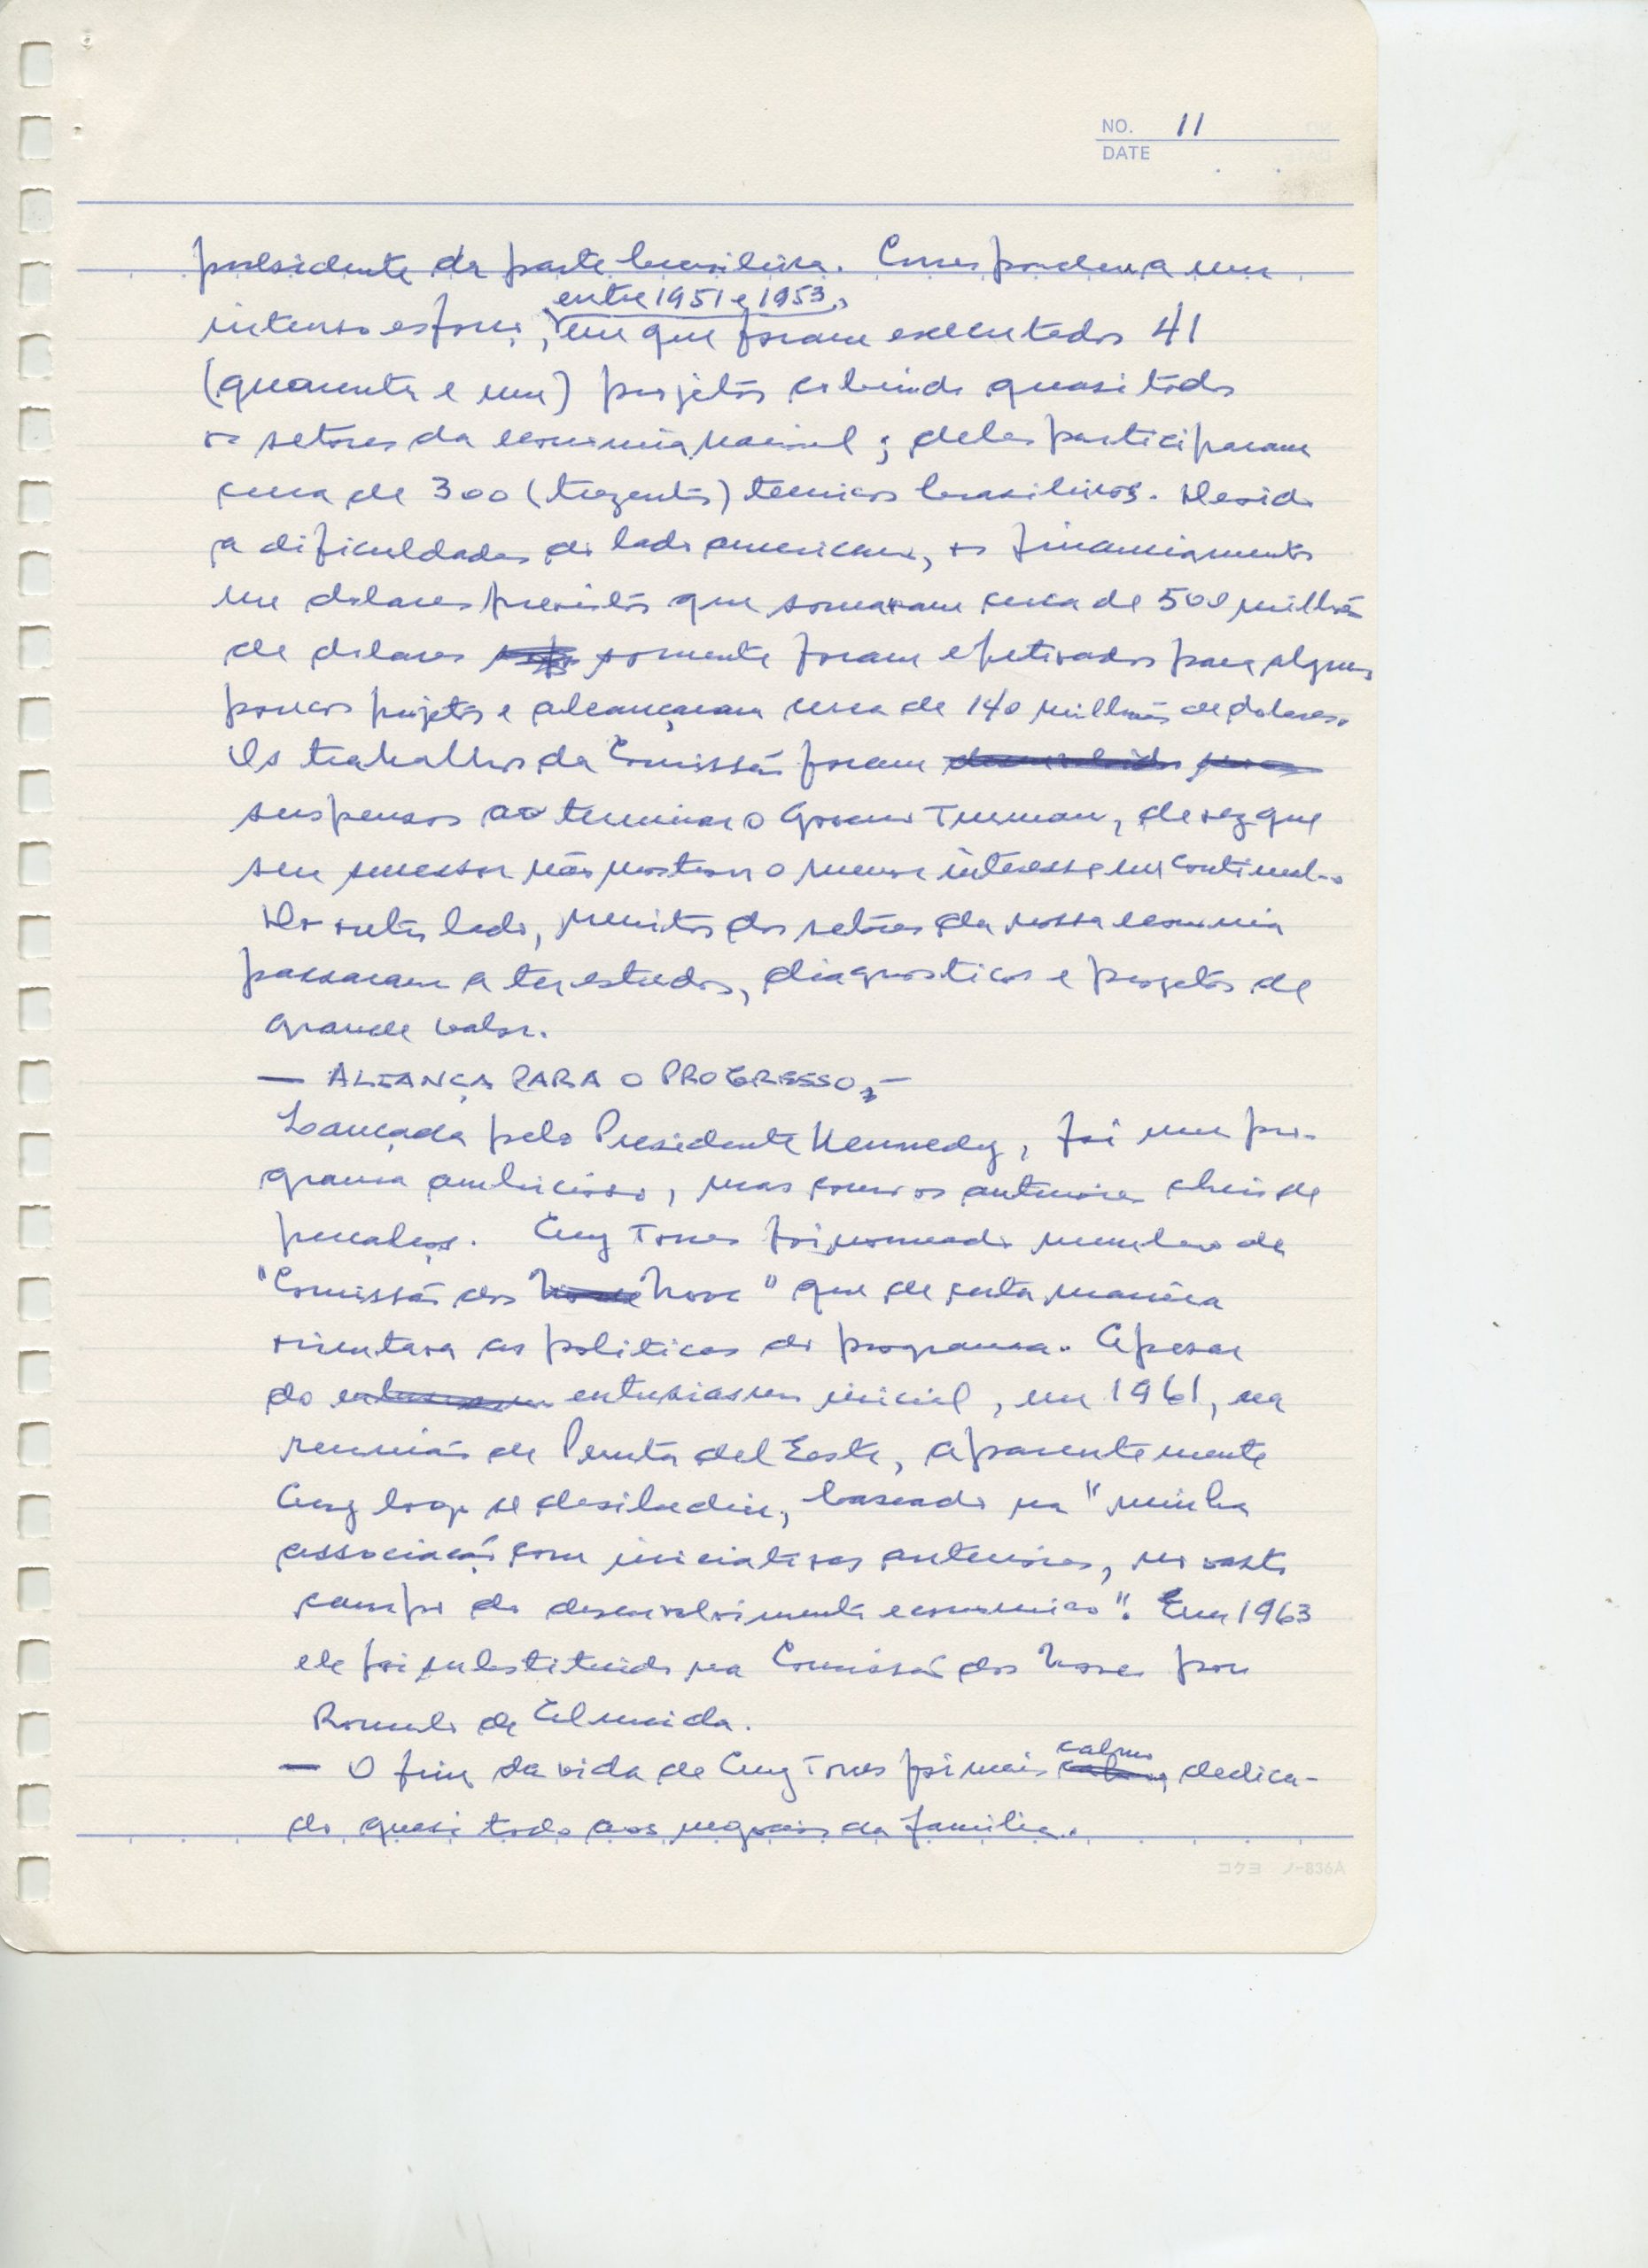 NO. 11
DATE
presidente da parte brasileira. Correspondeu a um
entre 1951 e 1953,
intenso esforço, em que foram executados 41
(quarenta e um) projetos cobrindo quasi todos
os setores da economia nacional; deles participaram
cerca de 300 (trezentos) tecnicos brasileiros. Devido
a dificuldades do lado americano, os financiamentos
em dolares previstos que somavam cerca de 500 milhões
de dolares somente foram efetivados para alguns
poucos projetos e alcançaram cerca de 140 milhões de dolares.
Os trabalhos da Comissão foram
suspensos ao terminar o Governo Truman, de vez que
seu sucessor não mostrou o menor interesse em continual-o
Do outro lado, muitos dos setores da nossa economia
passaram a ter estudos, diagnosticos e projetos de
grande valor.
— ALIANÇA PARA O PROGRESSO,—
Lançada pelo Presidente Kennedy, foi um pro-
grama ambicioso, mas como os anteriores cheio de
percalços. Ary Torres foi nomeado membro da
"Comissão dos Nove" que de certa maneira
orientava as politicas do programa. Apesar
do entusiasmo inicial, em 1961, na
reunião de Punta del Este, aparentemente
Ary logo se desiludiu, baseado na "minha
associação com iniciativas anteriores, no vasto
campo do desenvolvimento economico". Em 1963
ele foi substituido na Comissão dos Nove por
Romulo de Almeida.
calmo
— O fim da vida de Ary Torres foi mais dedica-
do quasi todo aos negocios da familia.
コクヨ ノ-836A